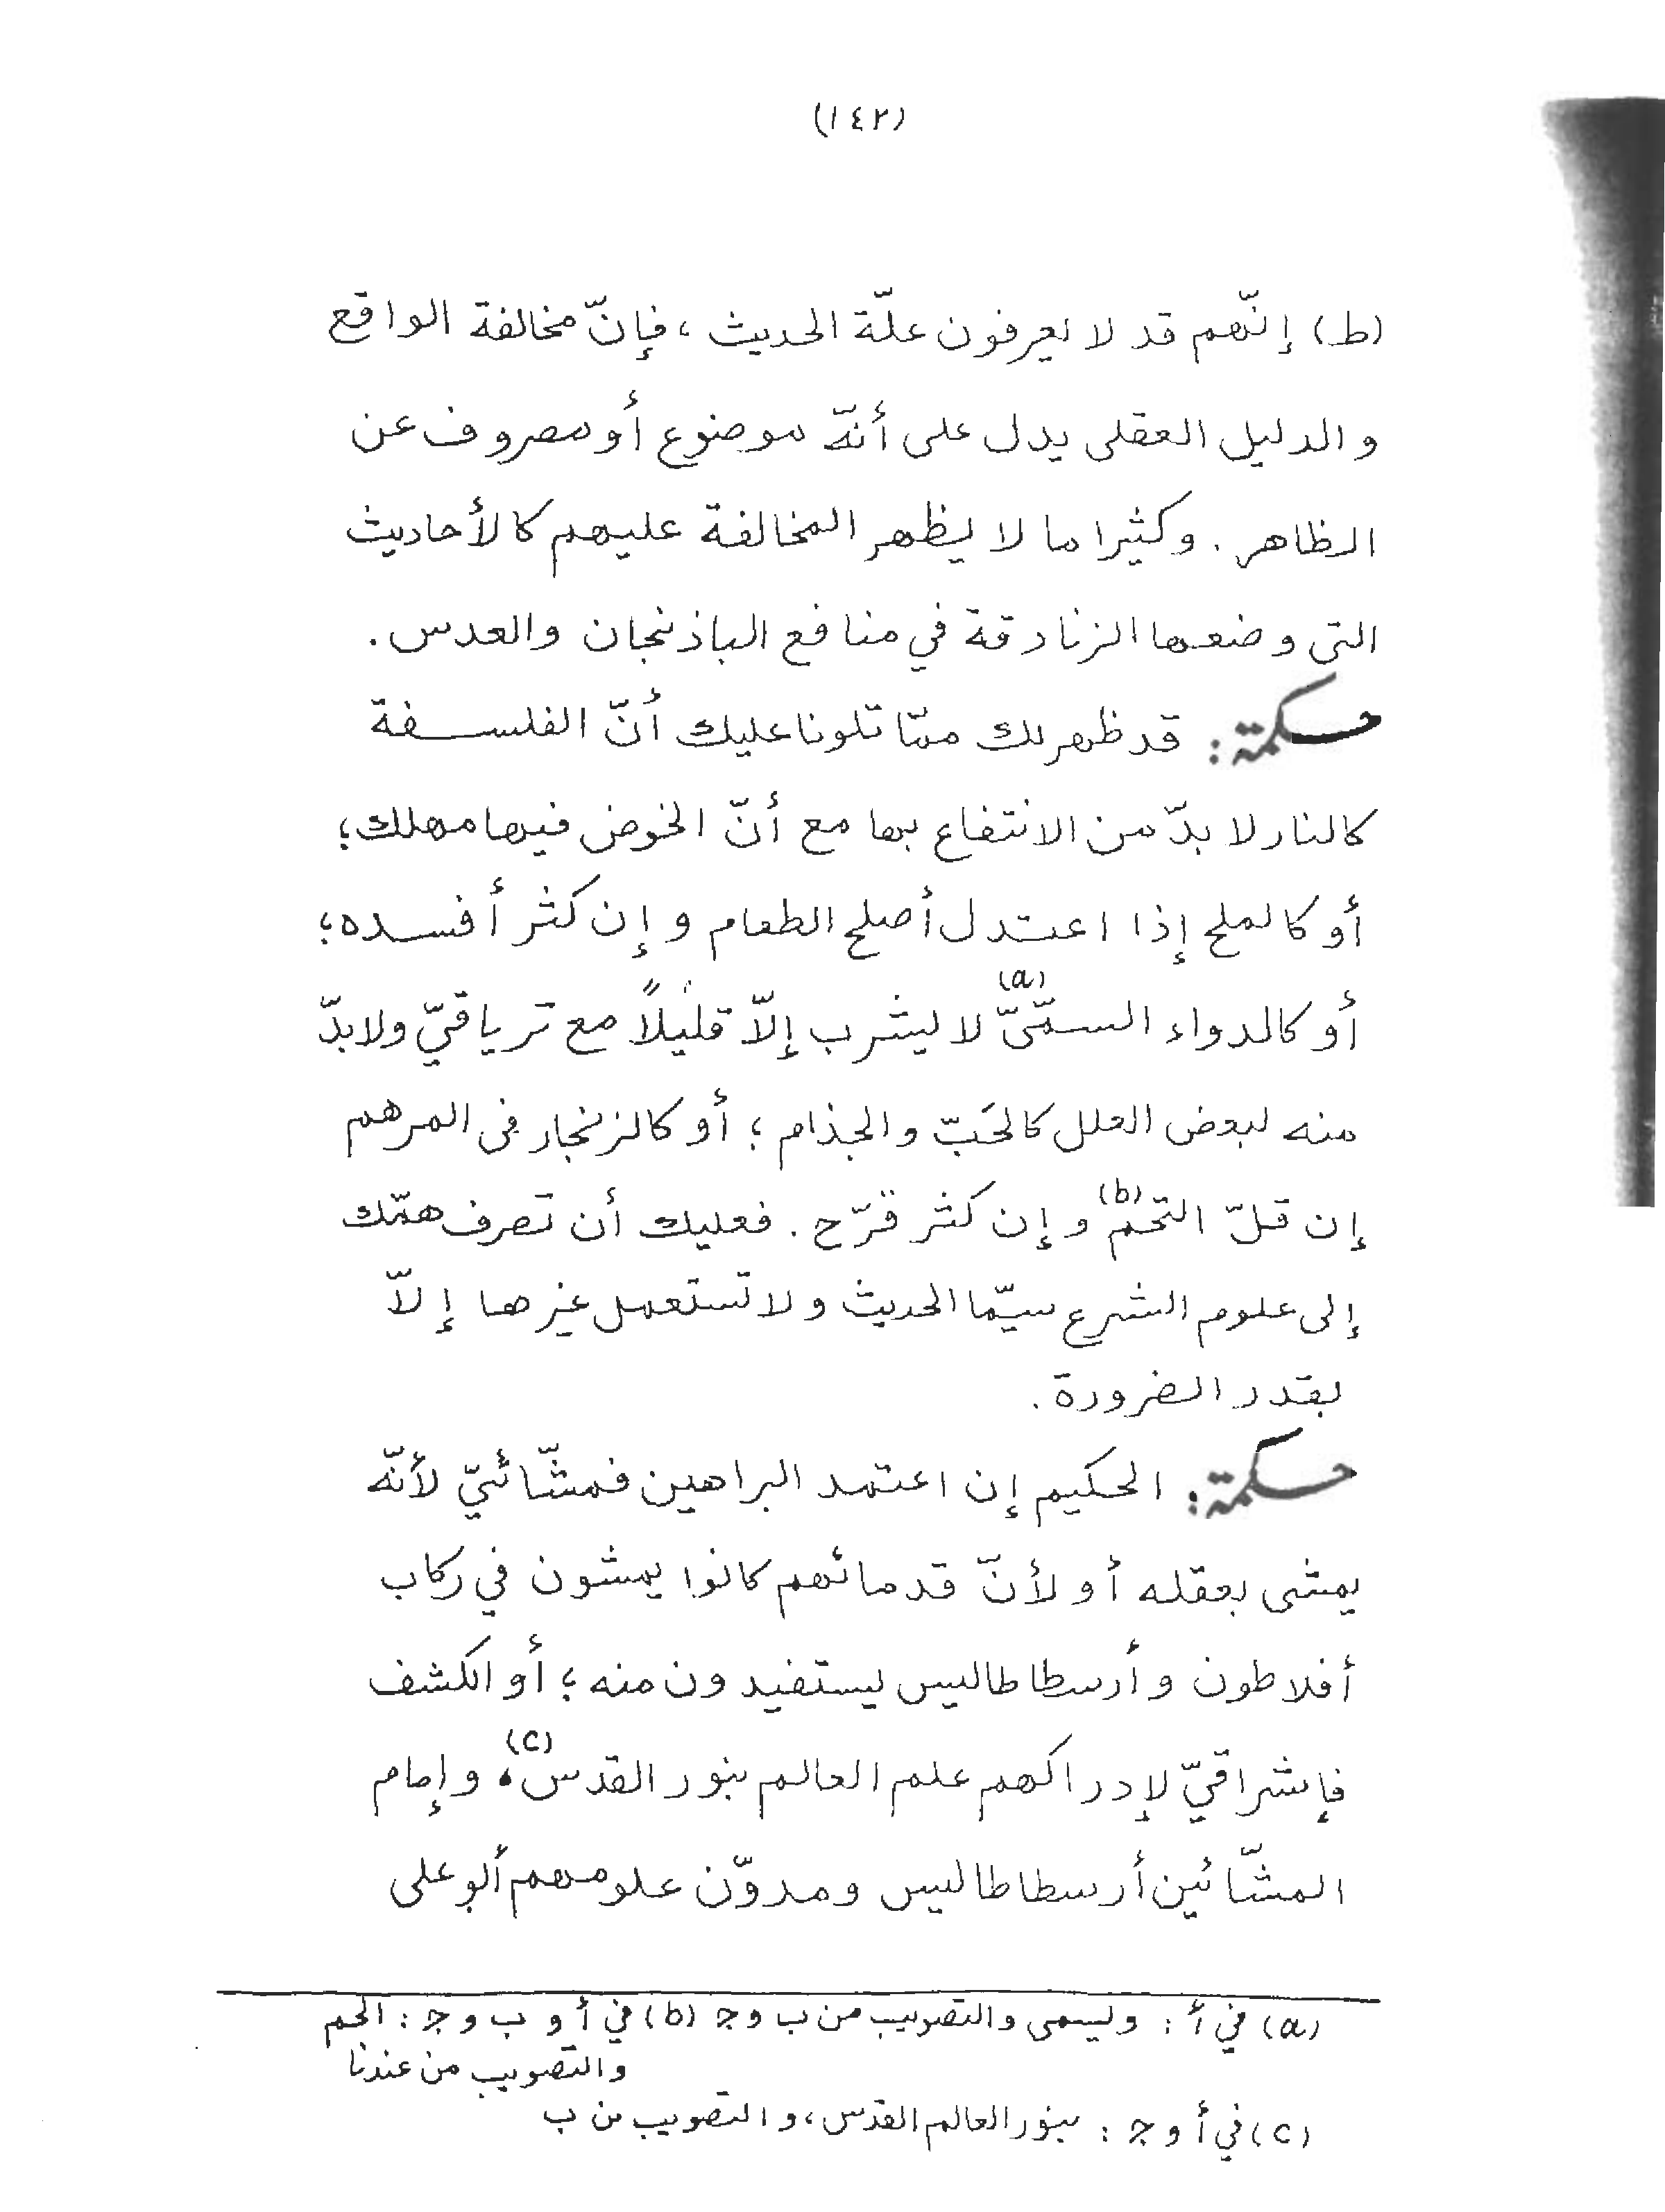 (١٤٢)
(ط) إنّهم قد لا يعرفون علّة الحديث، فإنّ مخالفة الواقع
و الدليل العقلى يدل على أنّه موضوع أو مصروف عن
الظاهر. وكثيرا ما لا يظهر المخالفة عليهم كالأحاديث
التى وضعها الزنادقة في منافع الباذنجان والعدس.
حكمة: قد ظهر لك ممّا تلونا عليك أنّ الفلسفة
كالنار لا بدّ من الانتفاع بها مع أنّ الخوض فيها مهلك؛
أو كالملح إذا اعتدل أصلح الطعام و إن كثر أفسده؛
أو كالدواء السمّىّ(a) لا يشرب إلاّ قليلاً مع ترياقيّ ولا بدّ
منه لبعض العلل كالحَبّ والجذام؛ أو كالزنجار فى المرهم
إن قلّ التحم(b) و إن كثر قرّح. فعليك أن تصرف همّك
إلى علوم الشرع سيّما الحديث و لا تستعمل غيرها إلاّ
بقدر الضرورة.
حكمة: الحكيم إن اعتمد البراهين فمشّائيّ لأنّه
يمشى بعقله أو لأنّ قدمائهم كانوا يمشون في ركاب
أفلاطون و أرسطاطاليس يستفيدون منه؛ أو الكشف
فإشراقيّ لإدراكهم علم العالم بنور القدس(c)، و إمام
المشّائين أرسطاطاليس ومدوّن علومهم أبو على
(a) في أ: وليسمى والتصويب من ب و ج (b) في أ و ب و ج: الحم
والتصويب من عندنا
(c) في أ و ج: بنور العالم القدس، و التصويب من ب